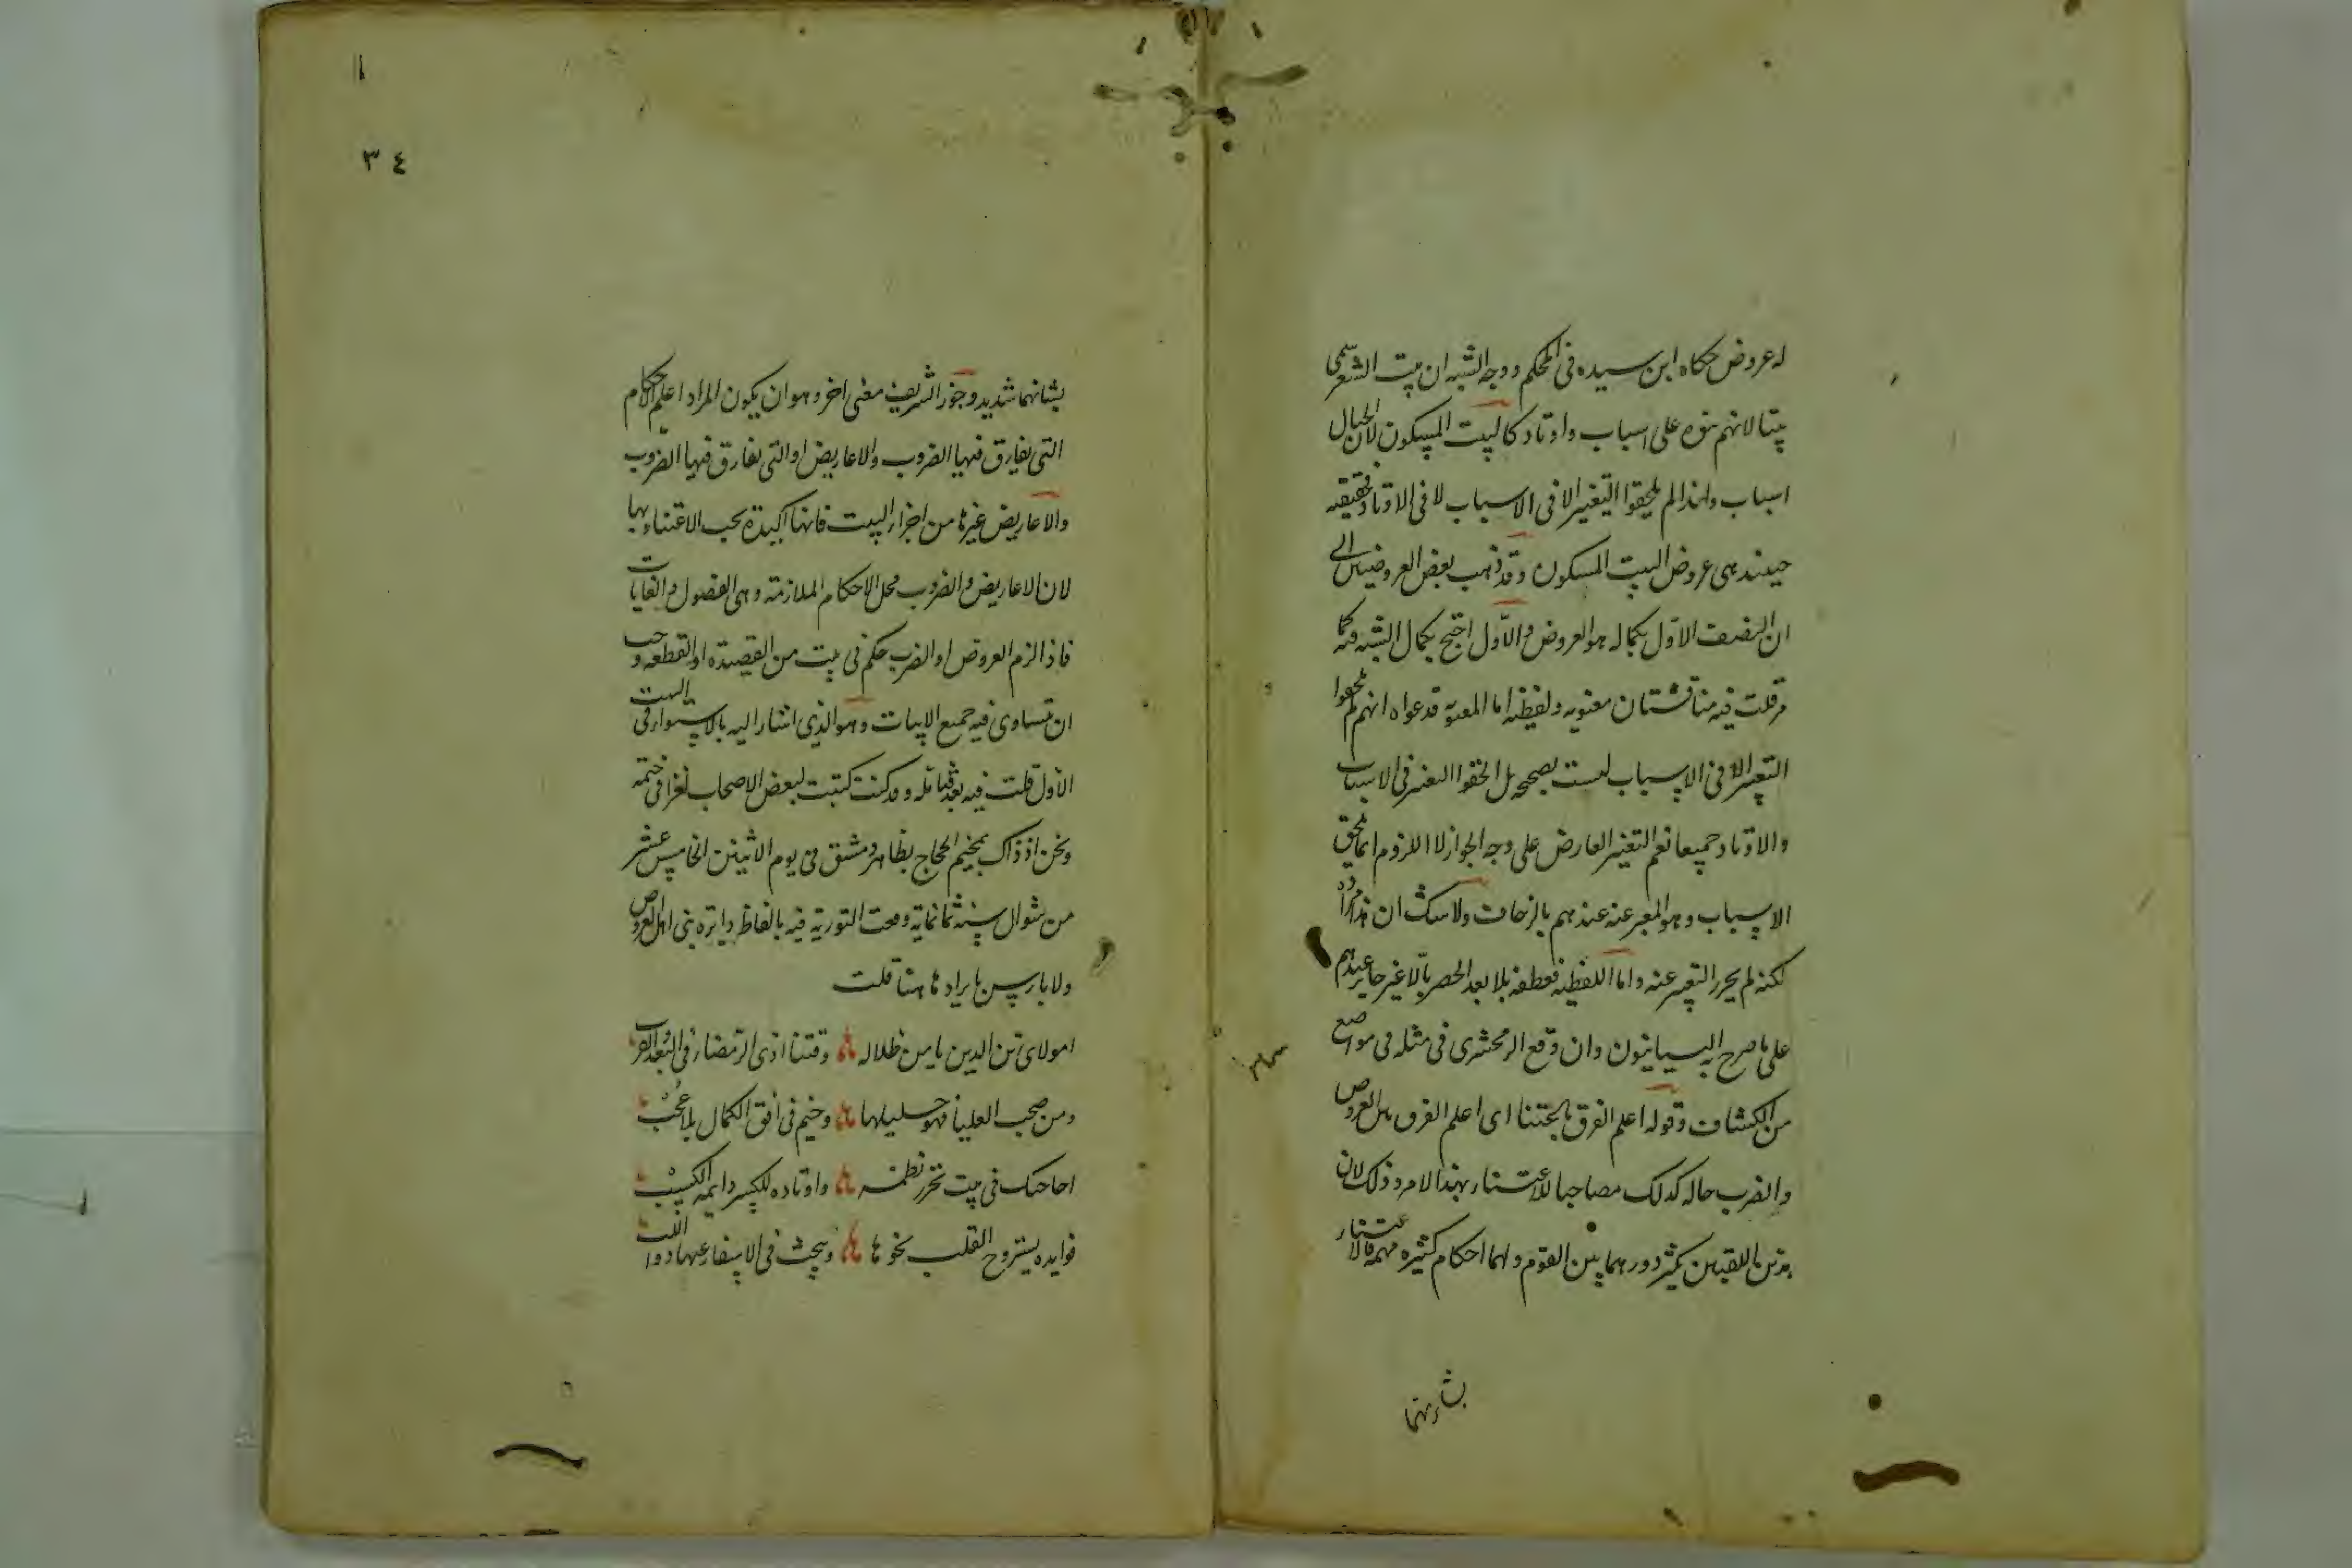 له عروض حكاه ابن سيده في المحكم ووجه الشبه ان بيت الشعر سمى
بيتا لانهم بنوه على اسباب واوتاد كالبيت المسكون لان الحبال
اسباب ولهذا لم يلحقوا التغيير الا في الاسباب لا في الاوتاد فحقيقته
حينئذ هي عروض البيت المسكون وقد ذهب بعض العروضيين الى
ان النصف الاول بكماله هو العروض والاول احتج بكمال الشبه فيه كما
مر قلت فيه مناقشتان معنويه ولفظيه اما المعنويه فدعواه انهم لم يلحقوا
التغيير الا في الاسباب ليست بصحيحه بل الحقوا التغير في الاسباب
والاوتاد جميعا نعم التغير العارض على وجه الجواز لا اللزوم انما يلحق
الاسباب وهو المعبر عنه عندهم بالزحاف ولا شك ان هذا مراده
لكنه لم يحرر التعبير عنه واما اللفظيه فعطفه بلا بعد الحصر بالا غير جايز عندهم
على ما صرح به البيانيون وان وقع الزمخشرى في مثله في مواضع
من الكشاف وقوله اعلم الفرق باعتنا اى اعلم الفرق بين العروض
والضرب حاله كذلك مصاحبا للاعتناء بهذا الامر وذلك لان
هذين اللقبين يكثر دورهما بين القوم ولهما احكام كثيره مهمه فالاعتناء
بشانهما
٣٤
بشانهما شديد وجوز الشريف معنى اخر وهو ان يكون المراد اعلم الاحكام
التى يفارق فيها الضروب والاعاريض او التى يفارق فيها الضروب
والاعاريض غيرها من اجزاء البيت فانها اكيدة يجب الاعتناء بها
لان الاعاريض والضروب محل الاحكام الملازمة وهي الفصول والغايات
فاذا لزم العروض او الضرب حكم في بيت من القصيده او القطعه وجب
ان تتساوى فيه جميع الابيات وهو الذي اشار اليه بالاستواء في البيت
الاول قلت فيه بعد فتامله وقد كنت كتبت لبعض الاصحاب لغزا في خيمة
ونحن اذ ذاك بمخيم الحجاج بظاهر دمشق في يوم الاثنين الخامس عشر
من شوال سنة ثمانماية وصحت التورية فيه بالفاظ دايرة بين اهل العروض
ولا باس بايرادها هنا قلت
امولاى زين الدين يا من ظلاله وقتنا اذى الرمضاء في البعد والقرب
ومن صحب العليا فهو خليلها وخيم في افق الكمال بلا عجب
احاجيك في بيت تحرر نظمه واوتاده للكسر دايمة الكسب
فوايده يستروح القلب نحوها ويبحث في الاسفار عنها ذوو اللب